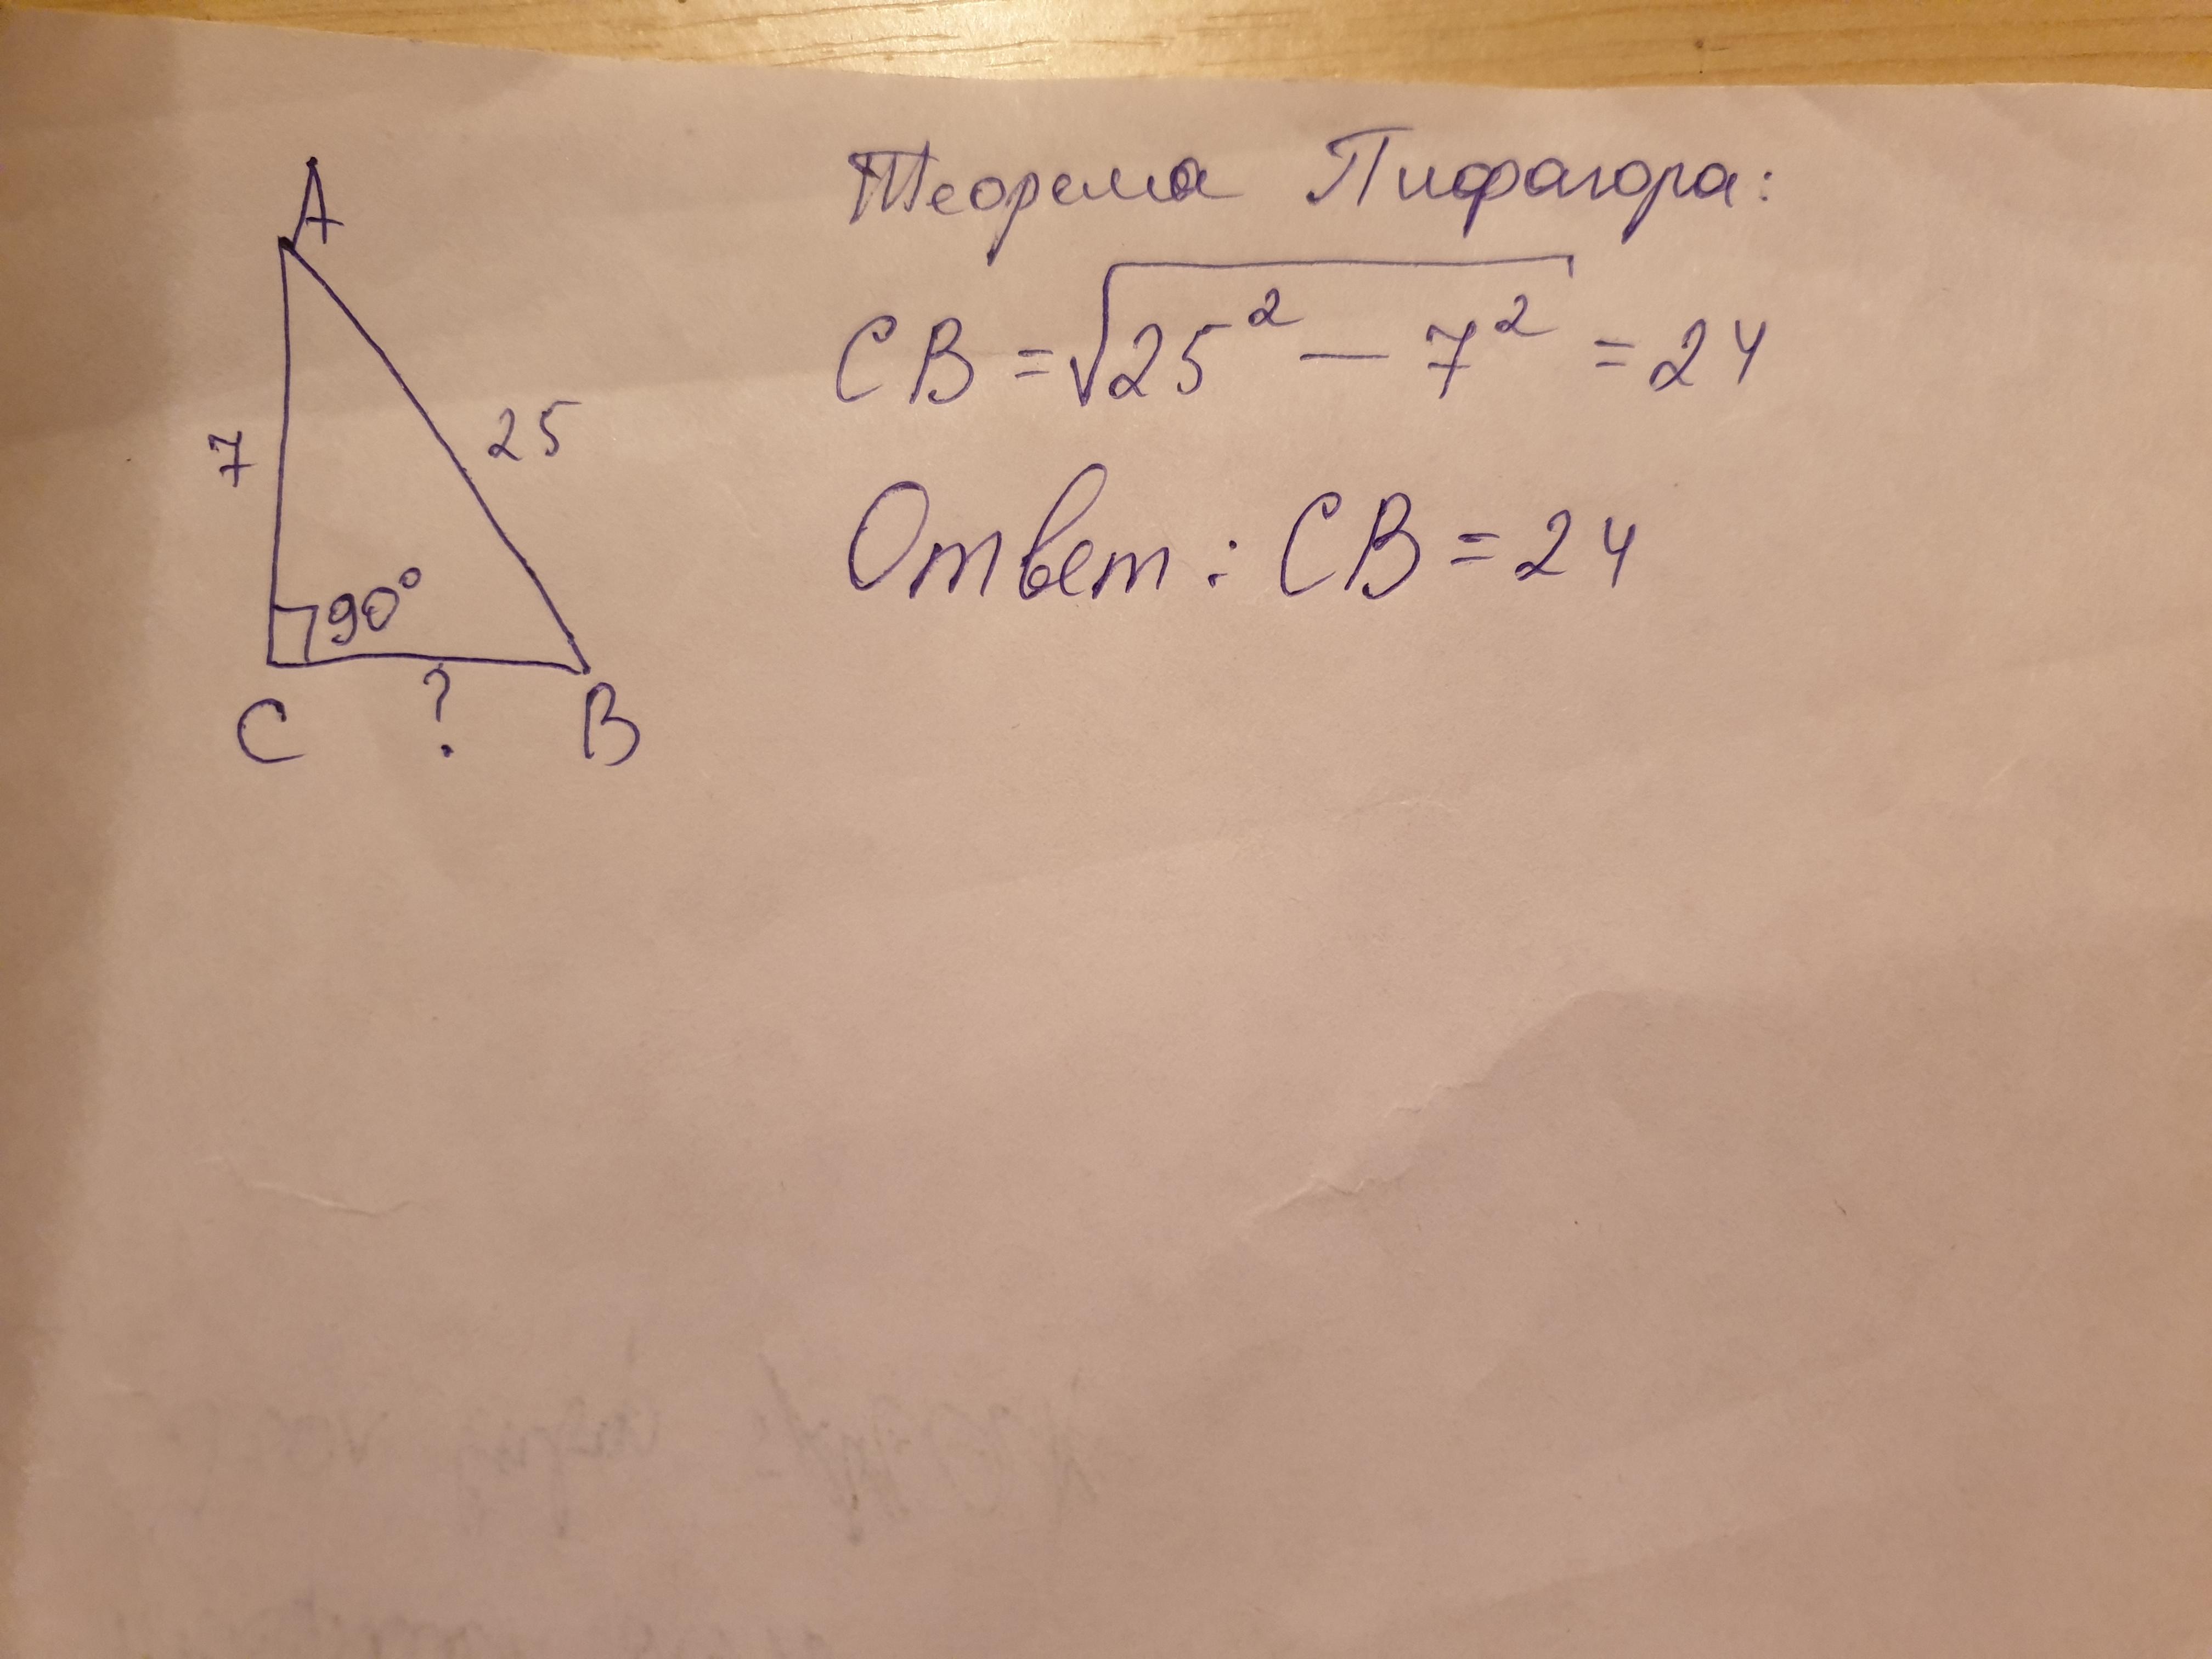 A
7
25
90°
C
?
B
Теорема Пифагора:
CB = √25² — 7² = 24
Ответ: CB = 24